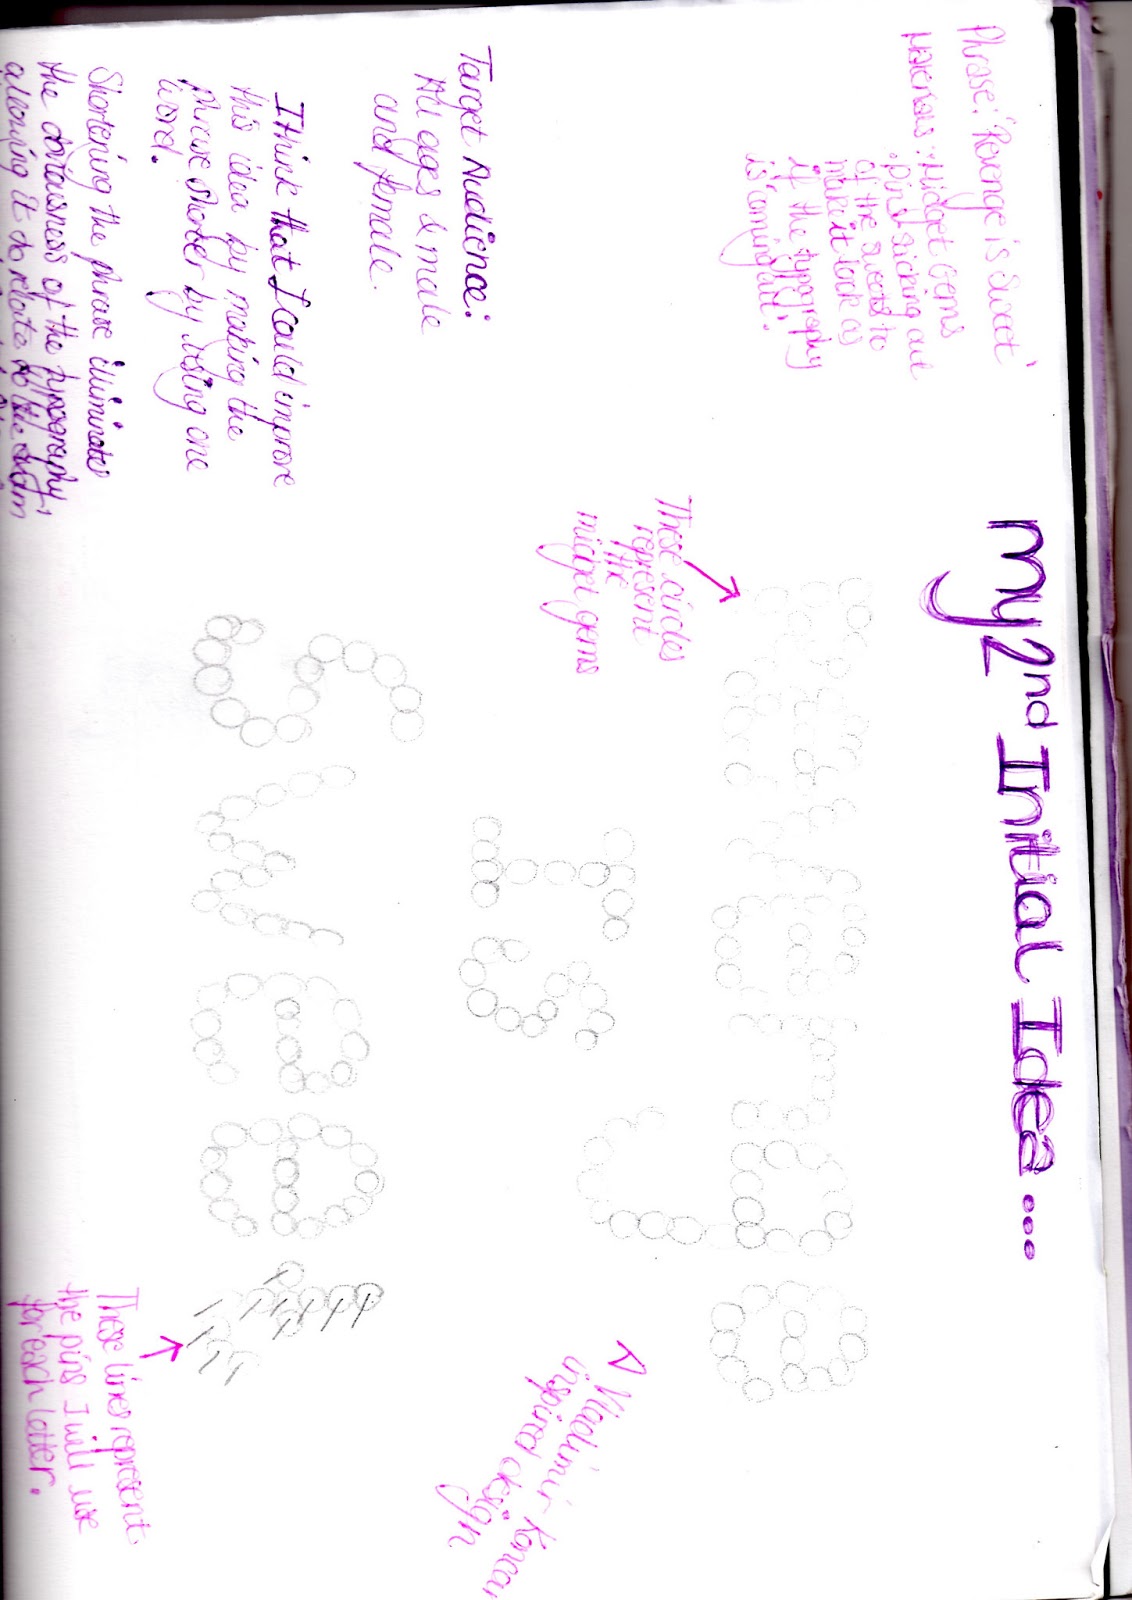 My 2nd Initial Idea....
Phrase: 'Revenge is Sweet'
Materials: Midget Gems
. pins sticking out
of the sweets to
make it look as
if the typography
is 'coming out'.
These circles
represent
the
midget gems
Revenge
is
sweet
A Vladimir Koncar
inspired design
Target Audience:
All ages & male
and female.
I think that I could improve
this idea by making the
phrase shorter by using one
word.
Shortening the phrase iluminates
the
of the typography,
allowing it to relate to the
These lines represent
the pins I will use
for each letter.